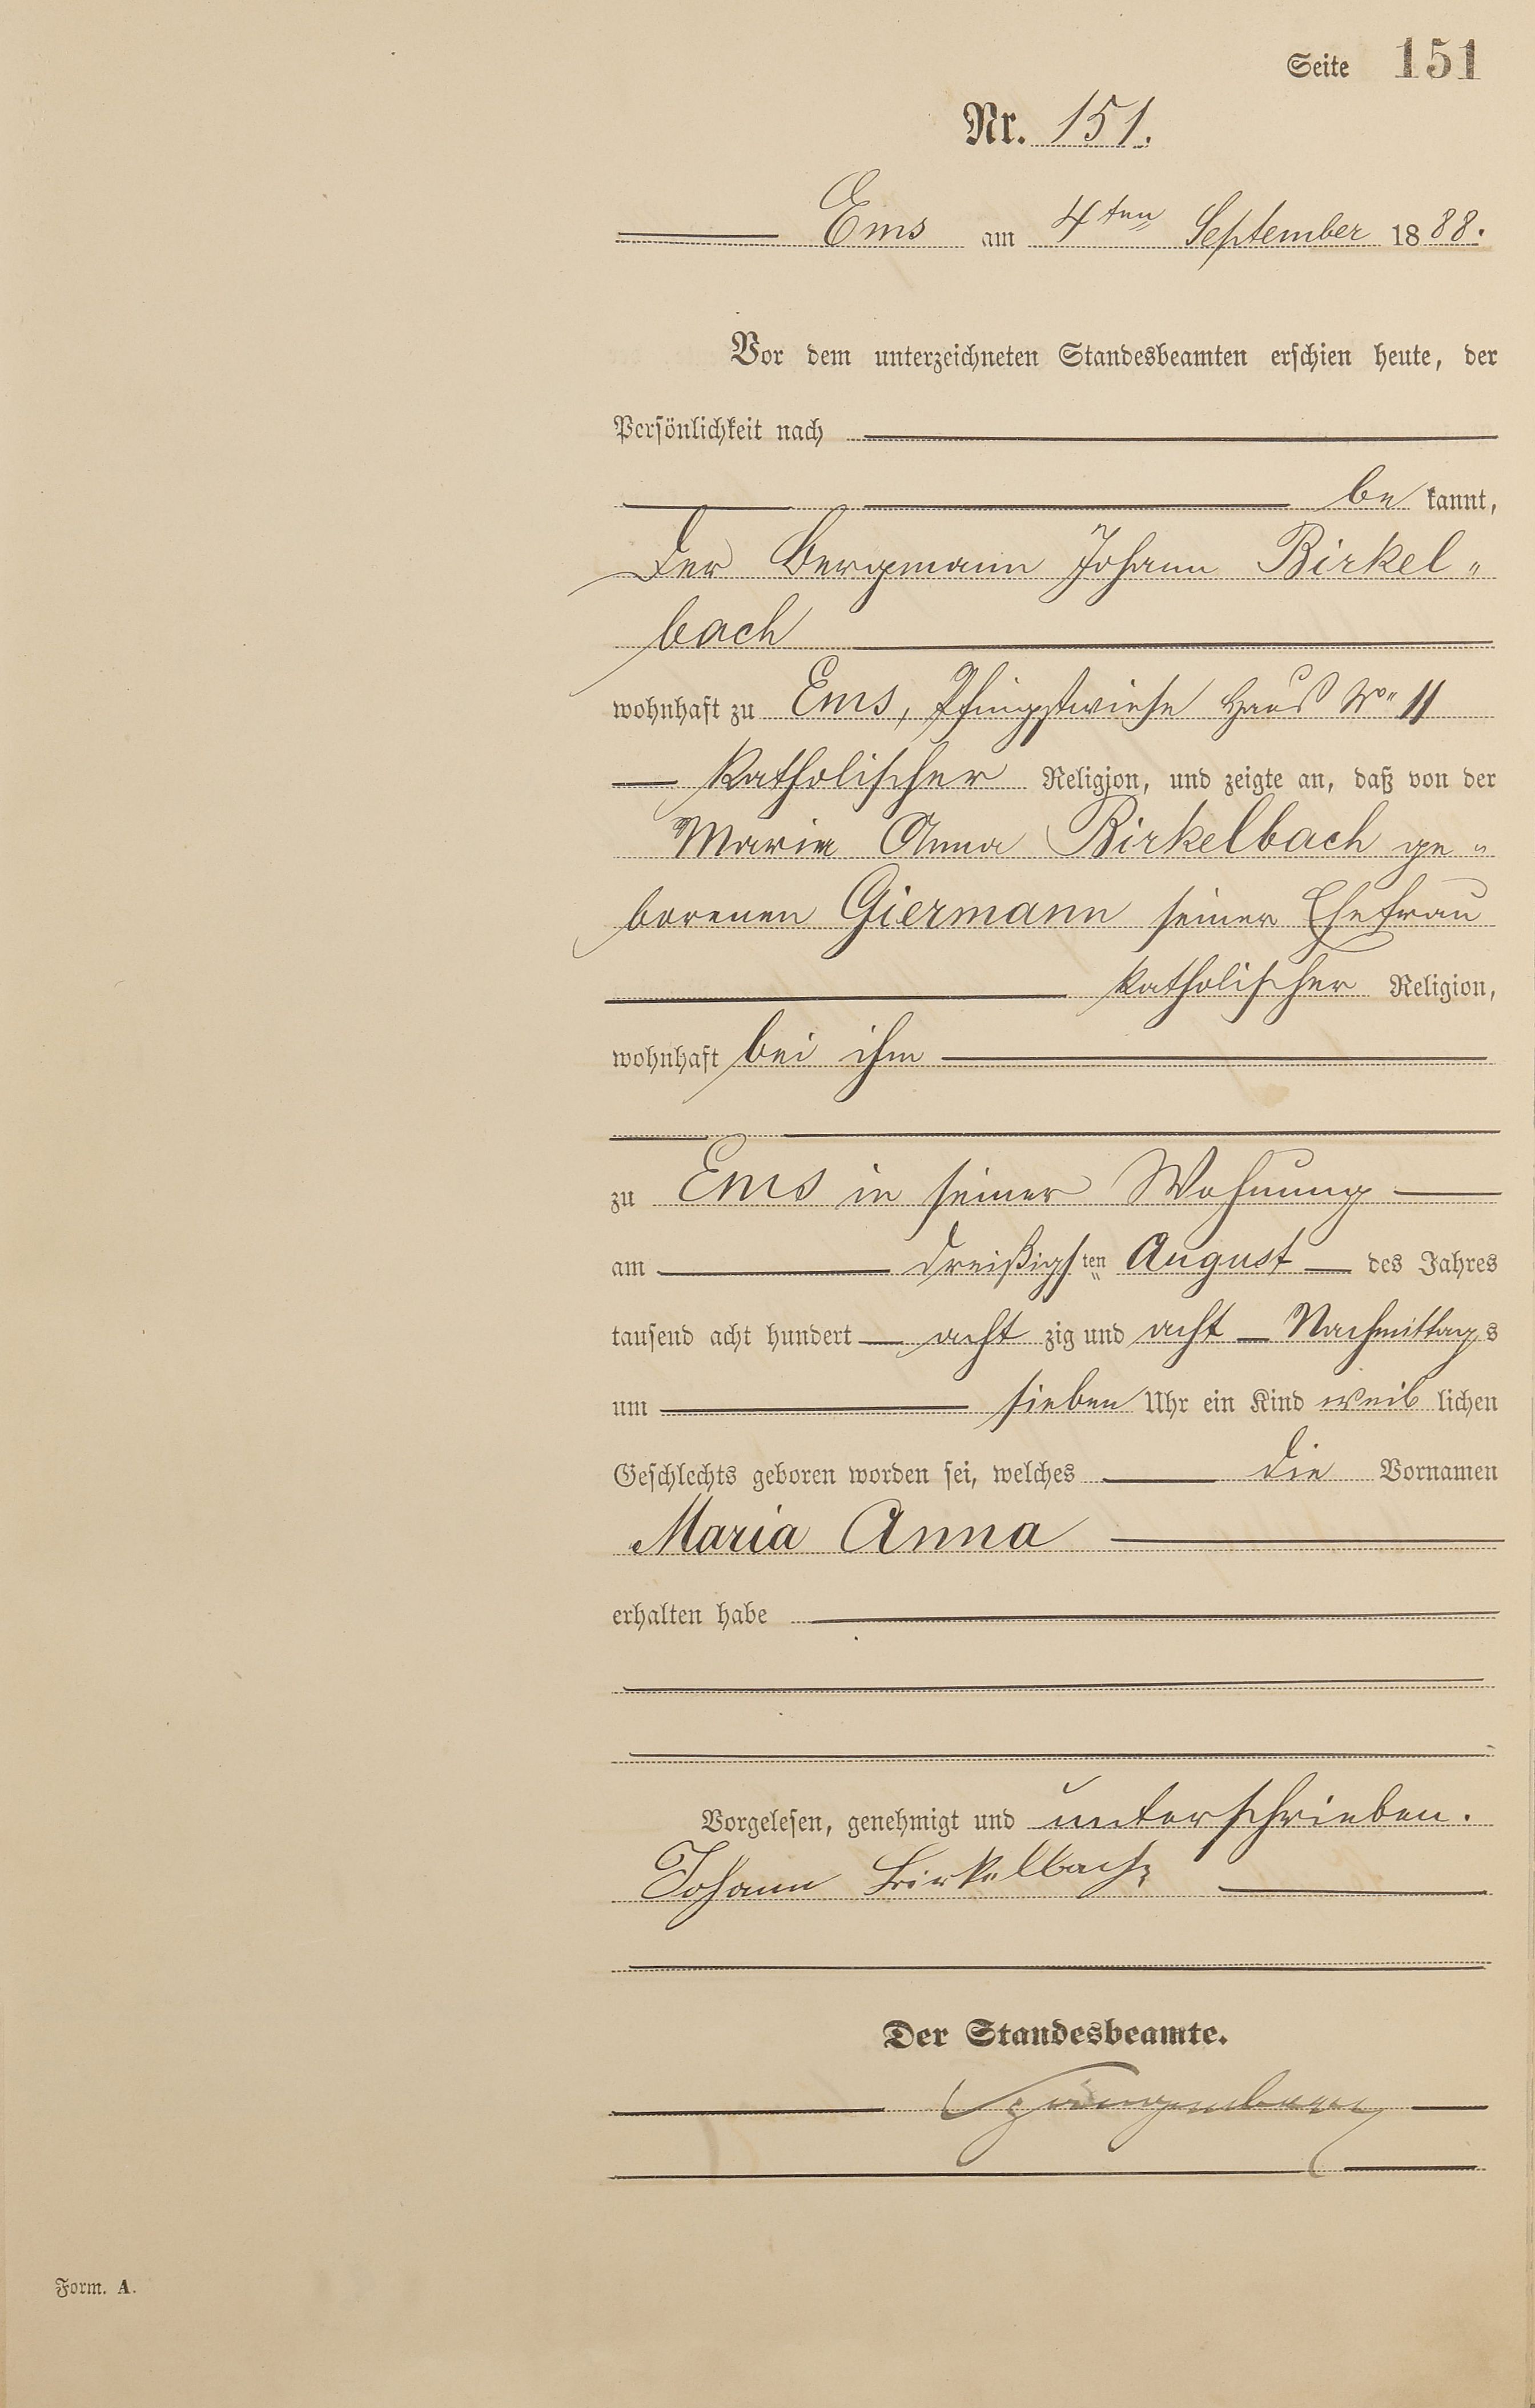 Seite 151
Nr. 151.
Ems am 4ten September 1888.
Vor dem unterzeichneten Standesbeamten erschien heute, der
Persönlichkeit nach
be kannt,
der Bergmann Johann Birkel„
bach
wohnhaft zu Ems, Pfingstwiese Haus No 11
katholischer Religion, und zeigte an, daß von der
Maria Anna Birkelbach ge„
borenen Giermann seiner Ehefrau
katholischer Religion,
wohnhaft bei ihm
zu Ems in seiner Wohnung
am dreißigsten August des Jahres
tausend acht hundert acht zig und acht Nachmittags
um sieben Uhr ein Kind weib lichen
Geschlechts geboren worden sei, welches die Vornamen
Maria Anna
erhalten habe
Vorgelesen, genehmigt und unterschrieben.
Johann Birkelbach
Der Standesbeamte.
Form. A.